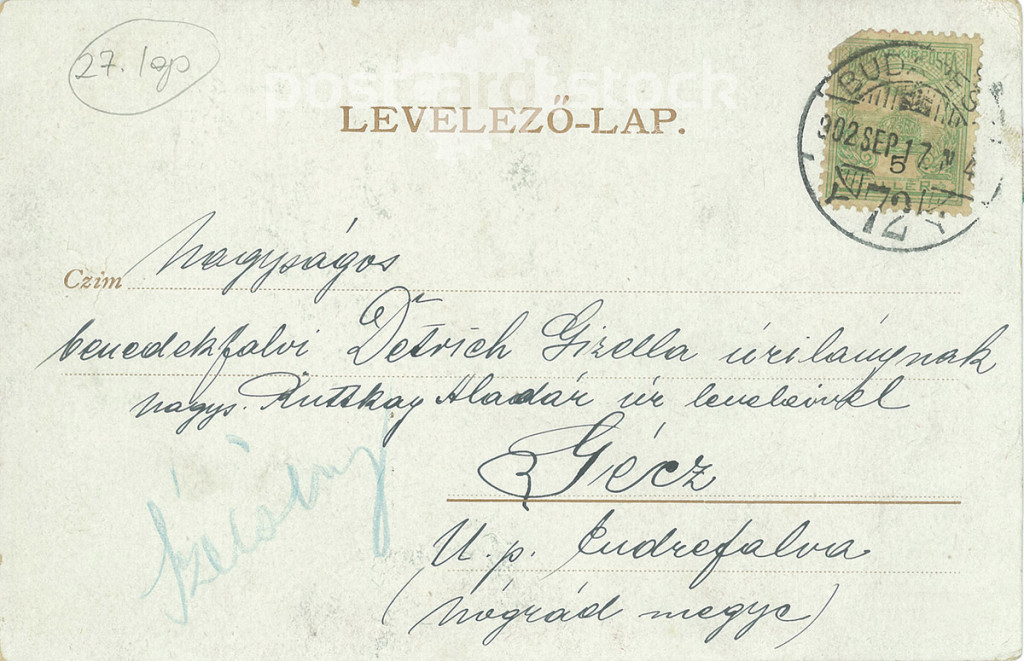 27. lap
postcardstock
LEVELEZŐ-LAP.
MAGYAR KIR. POSTA
BUDAPEST
902 SEP 17 N 4
5
FILLÉR
VII 72
Czim Nagyságos
benedekfalvi Detrich Gizella úrilánynak
nagys. Ruttkay Aladár úr leveleivel
Gécz
U. p. Endrefalva
(Nógrád megye)
Szécsény